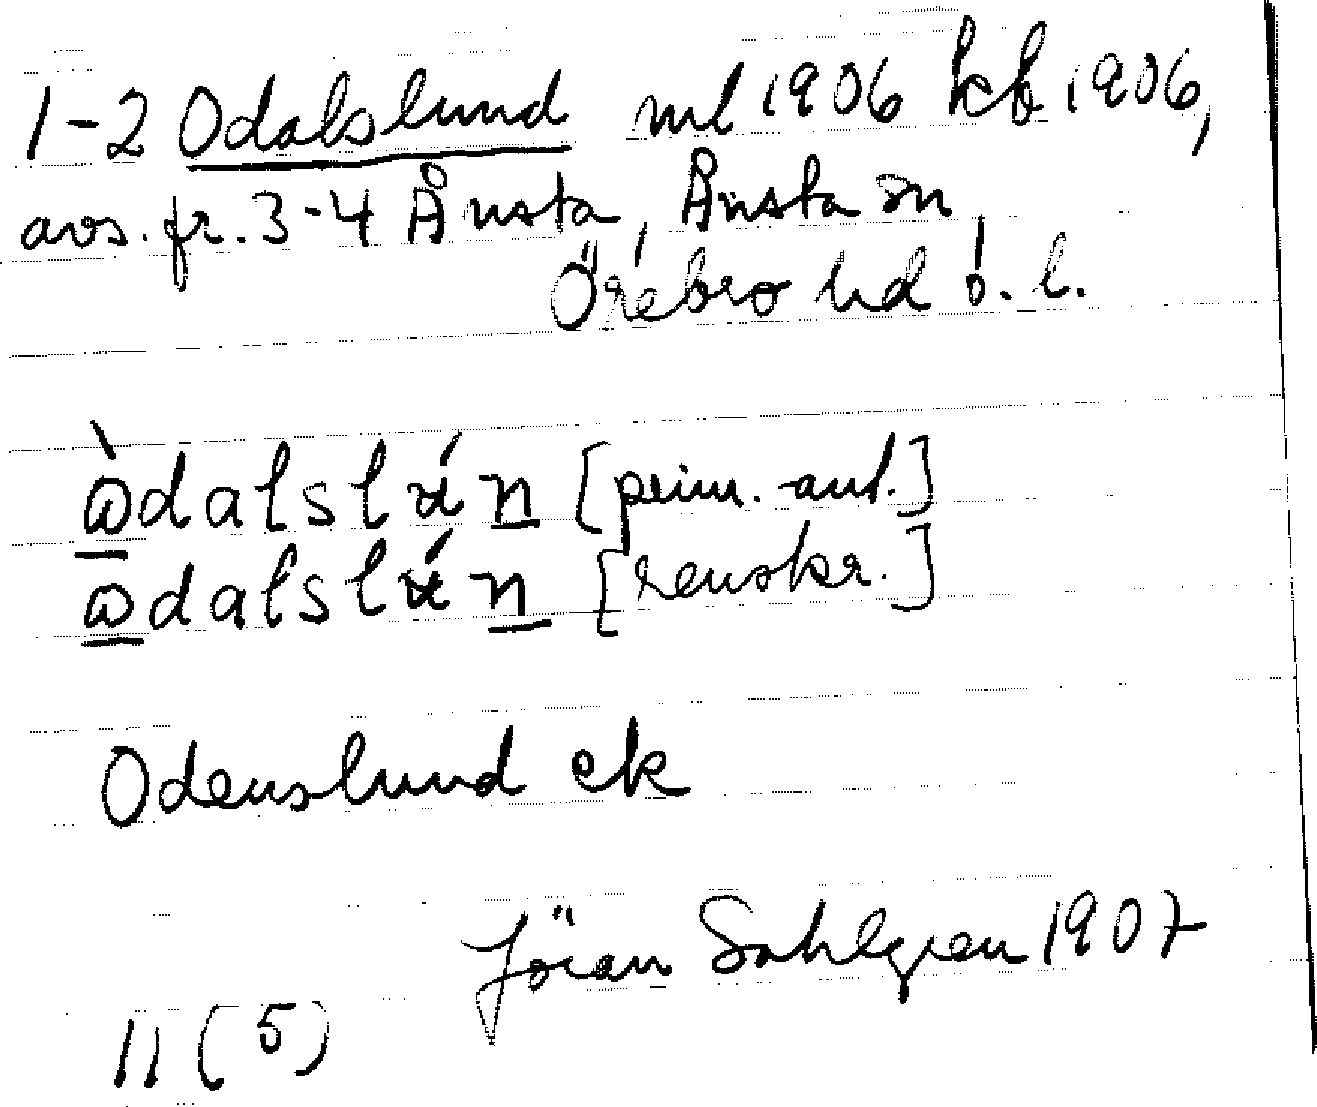 1-2 Odalslund ml 1906 kb 1906,
avs. fr. 3-4 Ånsta, Ånsta sn
Örebro hd ö. l.
òdalslún [prim.-auf.]
odalslún [renskr.]
Odenslund ek
Jöran Sahlgren 1907
11 (5)